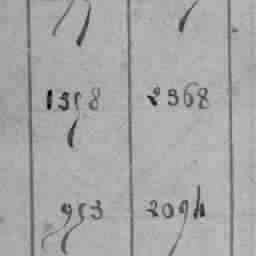 1358 2368
953 2094